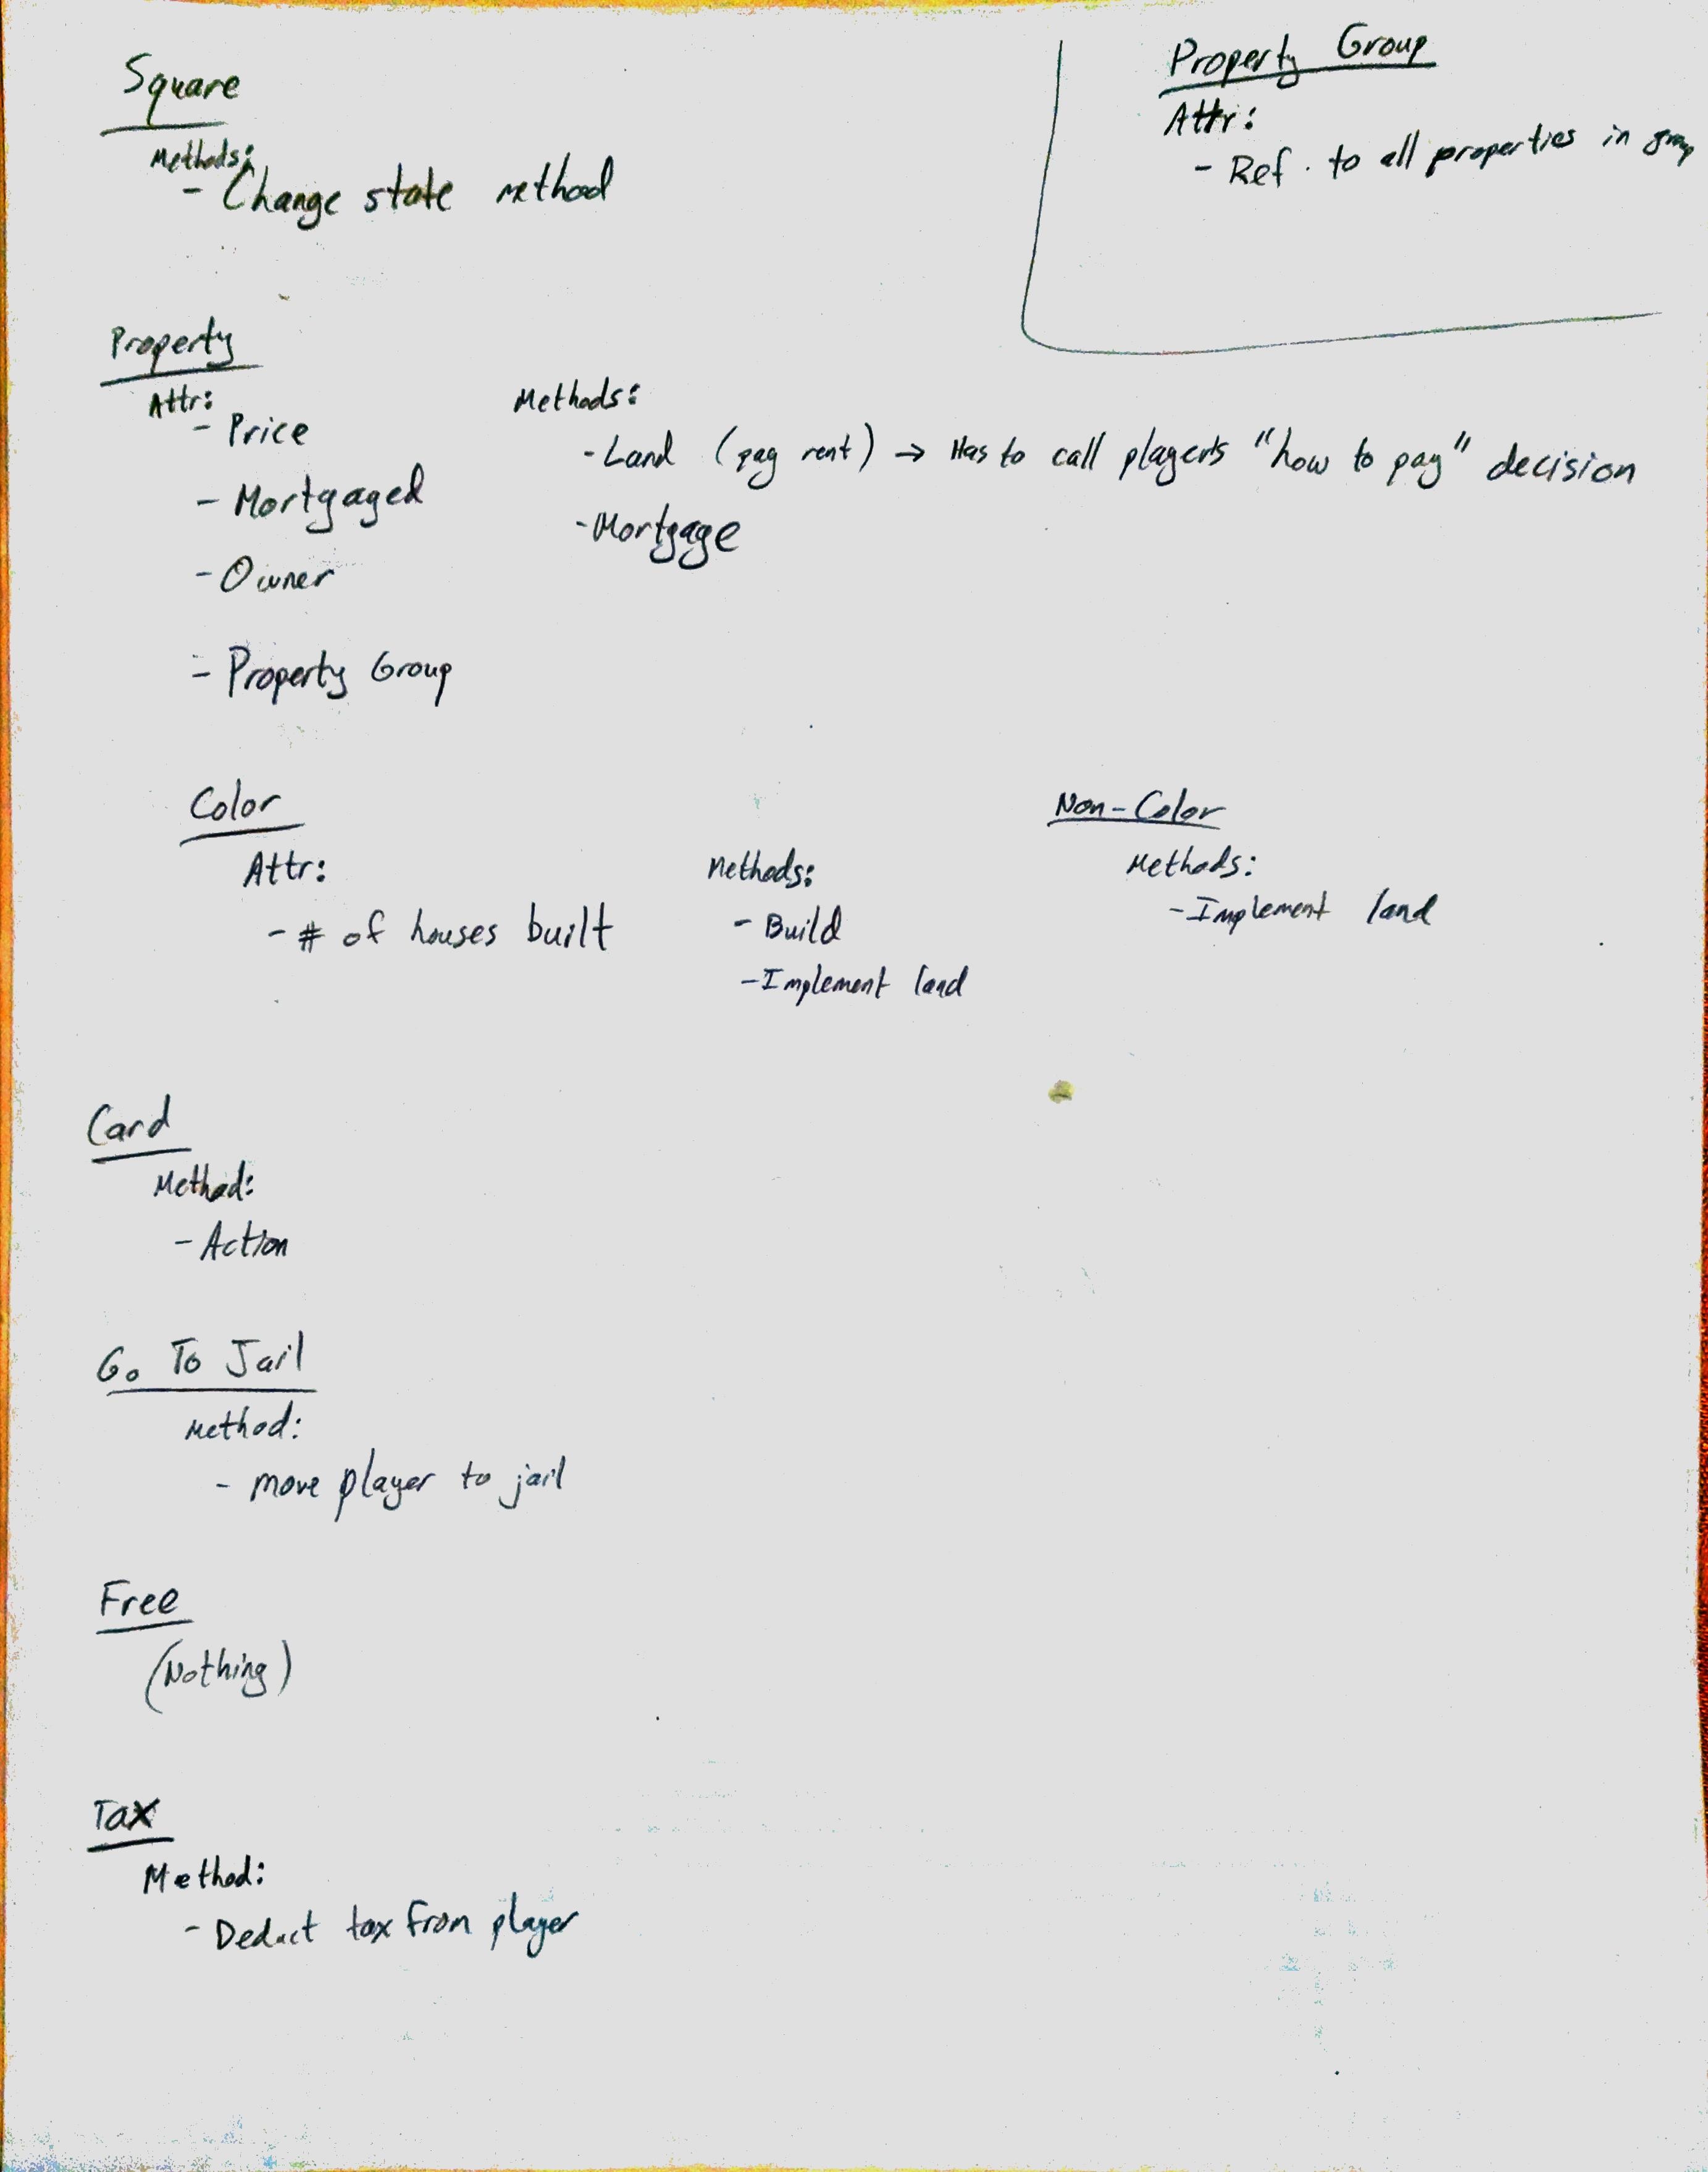 Square
Methods:
- Change state method
Property Group
Attr:
- Ref. to all properties in group
Property
Attr:
- Price
- Mortgaged
- Owner
- Property Group
Methods:
- Land (pay rent) → Has to call player's "how to pay" decision
- Mortgage
Color
Attr:
- # of houses built
Methods:
- Build
- Implement land
Non-Color
Methods:
- Implement land
Card
Method:
- Action
Go To Jail
Method:
- move player to jail
Free
(Nothing)
Tax
Method:
- Deduct tax from player